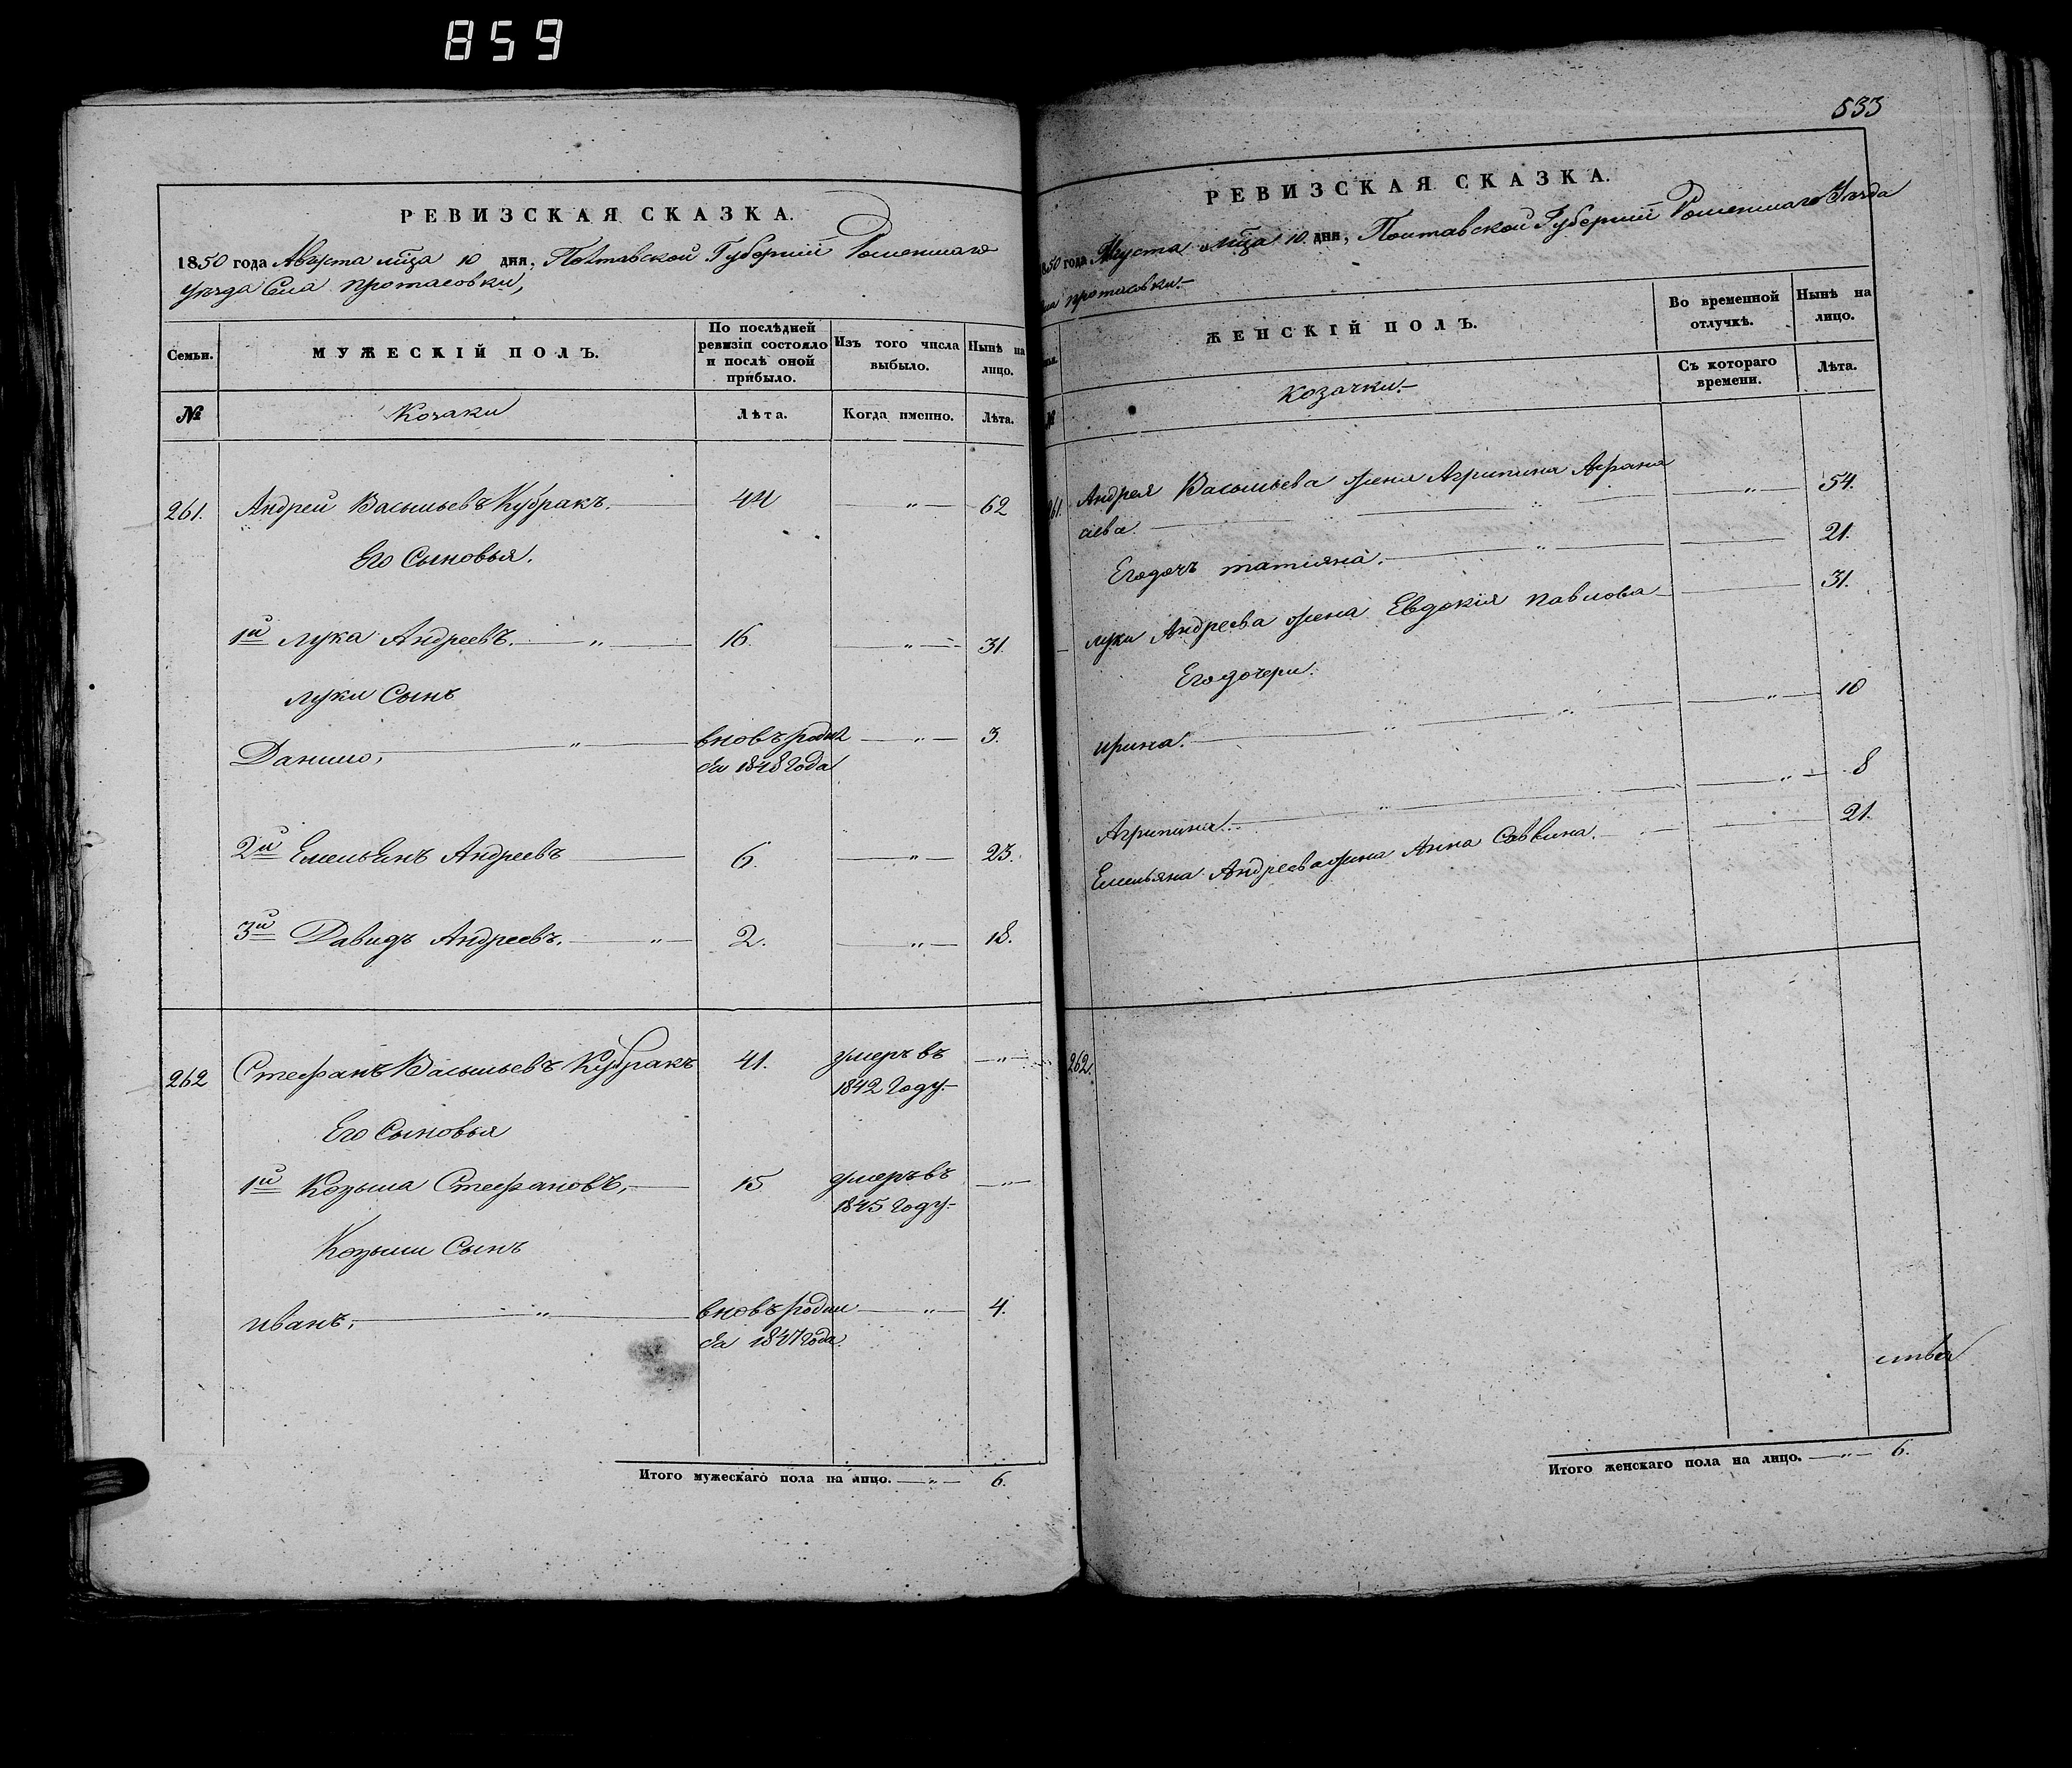 859
РЕВИЗСКАЯ СКАЗКА.
1850 года Августа мца 10 дня, Полтавской Губернии Роменшаго
уезда Села Протасовки,
Семьи.
МУЖЕСКІЙ ПОЛЪ.
По послѣдней
ревизіи состояло
и послѣ оной
прибыло.
Изъ того числа
выбыло.
Нынѣ на
лицо.
№
Козаки
Лѣта.
Когда именно.
Лѣта.
261. Андрей Васильевъ Кубракъ. 44 " 62
Его Сыновья.
1й Лука Андреевъ. " 16. " 31.
Луки Сынъ
Данило, " вновь родил " 3.
ся 1848 года
2й Емельянъ Андреевъ 6. " 23.
3й Давидъ Андреевъ. " 2. " 18.
262 Стефанъ Васильевъ Кубракъ 41. умеръ въ "
1842 году.
Его Сыновья
1й Козьма Стефановъ, 15 умеръ въ "
1845 году.
Козьми Сынъ
Иванъ, " вновь родил " 4.
ся 1847 года.
Итого мужескаго пола на лицо. " 6.
533
РЕВИЗСКАЯ СКАЗКА.
1850 года Августа мца 10 дня, Полтавской Губернии Роменшаго Уезда
Села Протасовки.
ЖЕНСКІЙ ПОЛЪ.
Во временной
отлучкѣ.
Нынѣ на
лицо.
№
Козачки.
Съ котораго
времени.
Лѣта.
261. Андрея Васильева жена Агрипина Афана " 54.
сіева.
Его дочъ Татіяна. " 21.
Луки Андреева жена Евдокія Павлова 31.
Его дочери.
Ирина. " " " 10
Агрипина. " " 8
Емельяна Андреева жена Анна Саввина. 21.
262.
Итого женскаго пола на лицо. " 6.